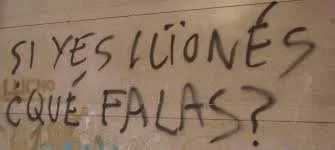 SI YES LLÏONÉS
¿QUÉ FALAS?